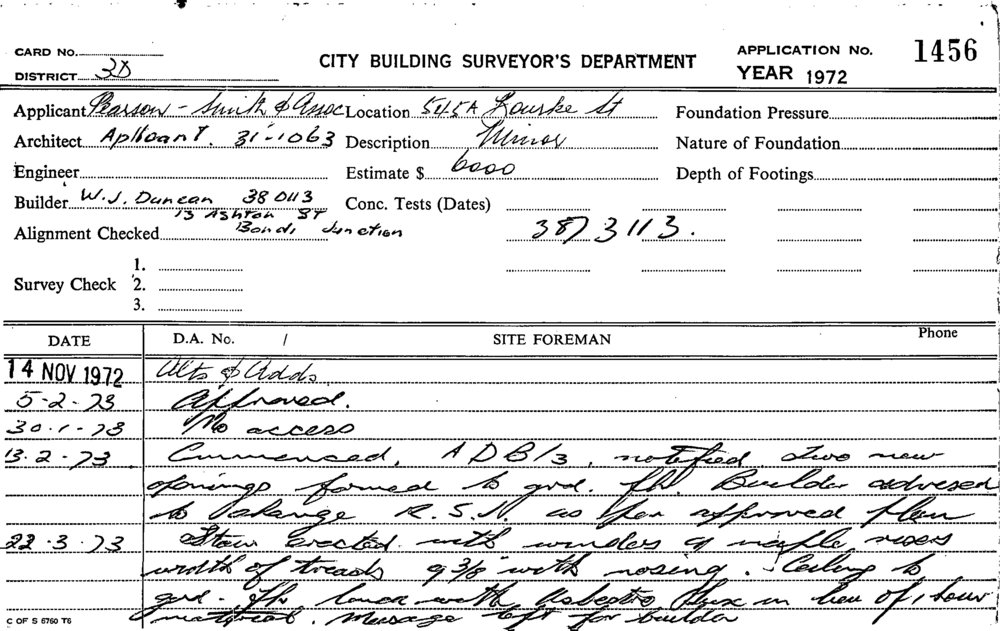 CARD No.
DISTRICT 3D
CITY BUILDING SURVEYOR'S DEPARTMENT
APPLICATION No. 1456
YEAR 1972
Applicant Pearson - Smith & Assoc Location 545A Bourke St Foundation Pressure
Architect Applicant. 31-1063 Description Minor Nature of Foundation
Engineer Estimate $ 6000 Depth of Footings
Builder W.J. Duncan 380113 Conc. Tests (Dates)
13 Ashton ST
Alignment Checked Bondi Junction 3873113.
1.
Survey Check 2.
3.
DATE D.A. No. / SITE FOREMAN Phone
14 NOV 1972 Alts & Adds.
5-2-73 Approved.
30-1-73 No access
13.2-73 Commenced, A D B/3, notified two new
openings formed to grd. flr. Builder advised
to change R.S.J. as per approved plan
22.3.73 Stair erected with winders of risers
width of treads 9 3/8" with nosing. Ceiling to
grd. flr. with Asbestos in lieu of 1 hour
material. Message left for builder
C OF S 6760 T6